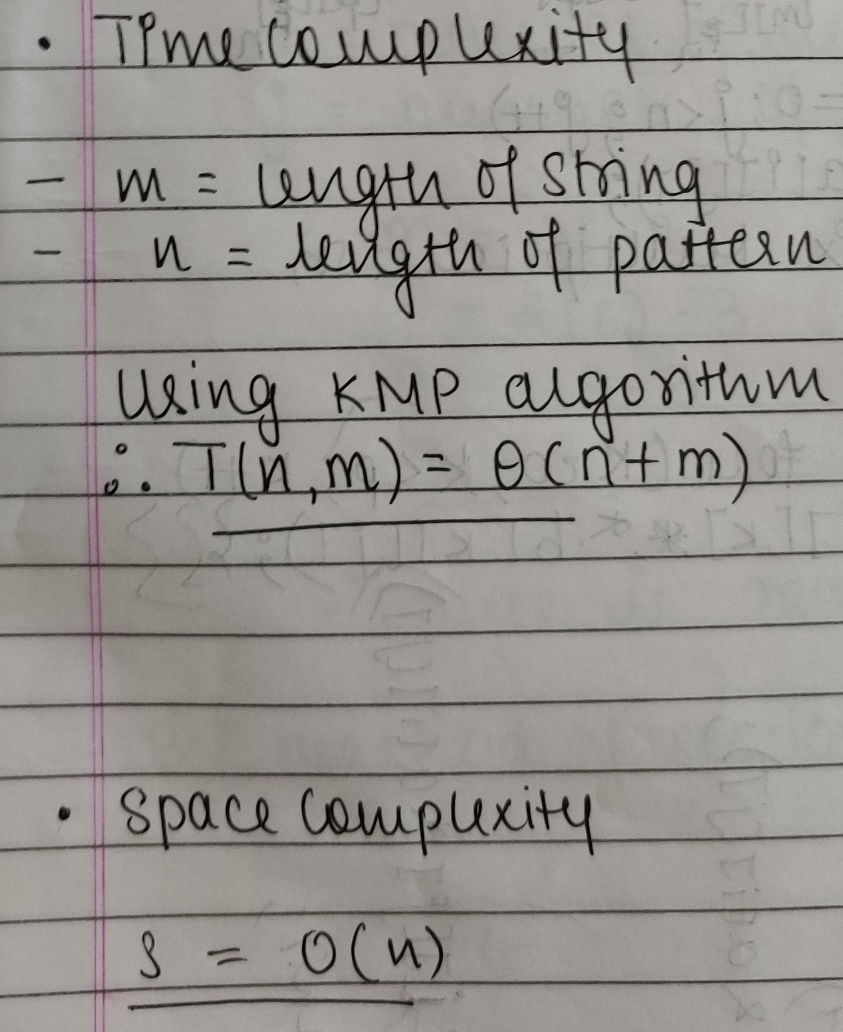 • Time complexity
- m = length of string
- n = length of pattern
Using KMP algorithm
∴ T(n,m) = θ(n+m)
• Space complexity
S = O(n)